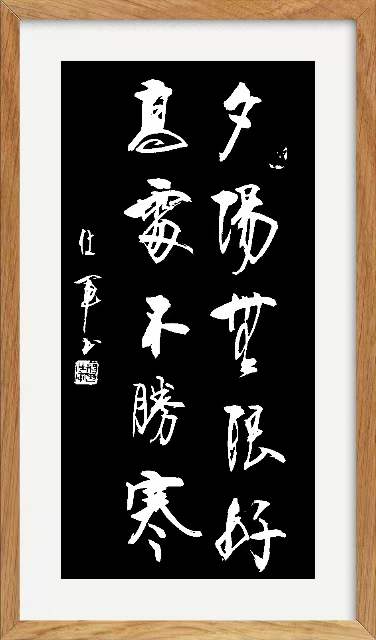 夕陽無限好
高處不勝寒
仕軍书